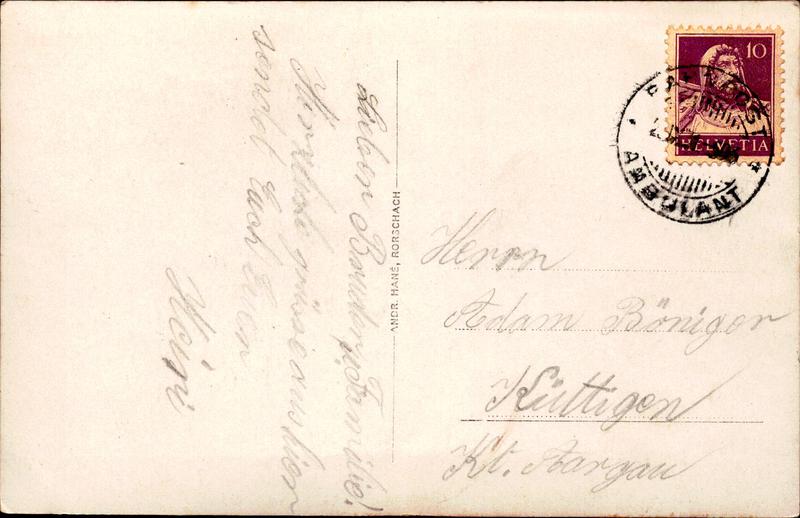 Lieber Bruder, Familie!
Herzliche grüsse aus hier
sendet Euch Euer
Heini
ANDR. HANÉ, RORSCHACH
10
HELVETIA
AMBULANT
Herrn
Adam Böniger
Küttigen
Kt. Aargau